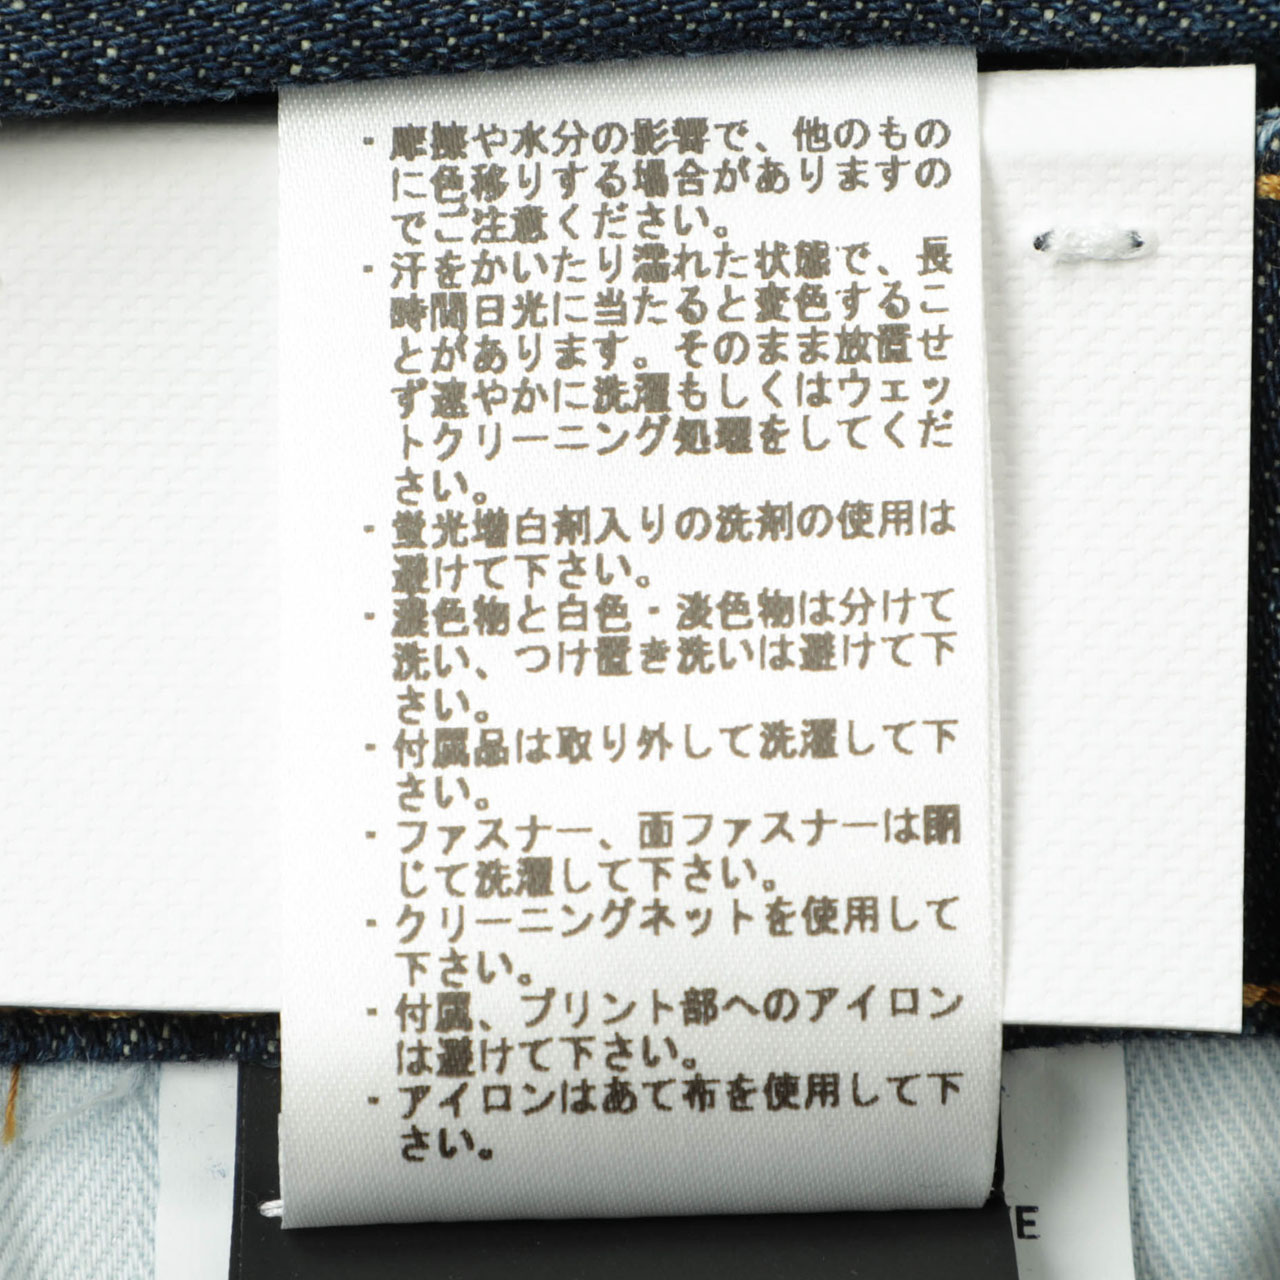 ・摩擦や水分の影響で、他のもの
に色移りする場合がありますの
でご注意ください。
・汗をかいたり濡れた状態で、長
時間日光に当たると変色するこ
とがあります。そのまま放置せ
ず速やかに洗濯もしくはウェッ
トクリーニング処理をしてくだ
さい。
・蛍光増白剤入りの洗剤の使用は
避けて下さい。
・濃色物と白色・淡色物は分けて
洗い、つけ置き洗いは避けて下
さい。
・付属品は取り外して洗濯して下
さい。
・ファスナー、面ファスナーは閉
じて洗濯して下さい。
・クリーニングネットを使用して
下さい。
・付属、プリント部へのアイロン
は避けて下さい。
・アイロンはあて布を使用して下
さい。